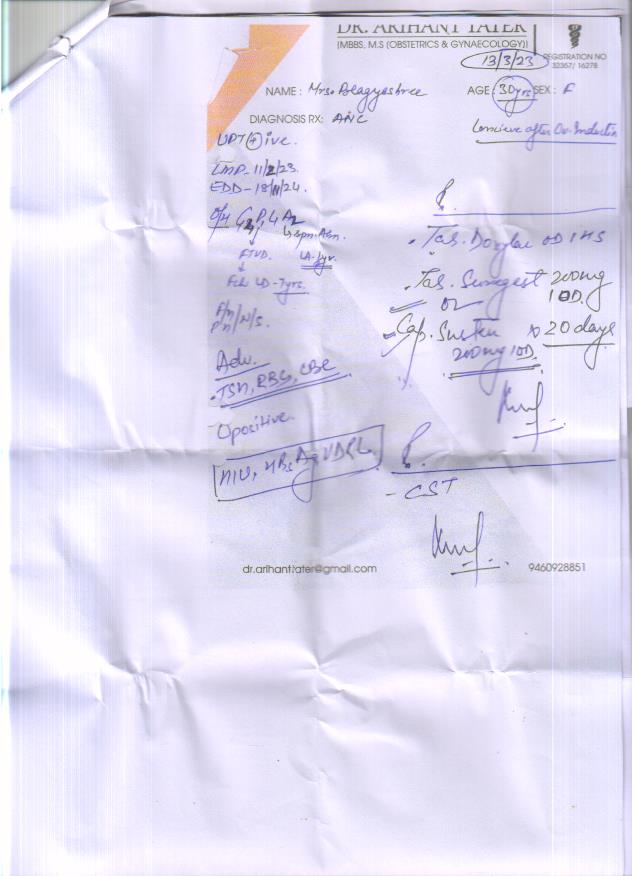 DR. ARIHANT TATER
(MBBS, M.S (OBSTETRICS & GYNAECOLOGY))
REGISTRATION NO
32357/ 16278
13/3/23
NAME : Mrs. Bhagyashree
AGE : 30yrs SEX : F
DIAGNOSIS RX: ANC
Concieve after Ov. Induction
UPT (+)ive.
LMP- 11/2/23.
EDD- 18/11/24.
O/H
Spn. Abn.
FTVD.
LA-1yr.
Fch LD-7yrs.
Tab. OD HS
Tab. Susegest 200mg
1OD.
or
Cap. Susten x 20 days
200mg 1OD.
P/H/N/S.
Adv.
TSH, RBS, CBC
O positive.
HIV, HBsAg, VDRL
- CST
dr.arihant.tater@gmail.com
9460928851